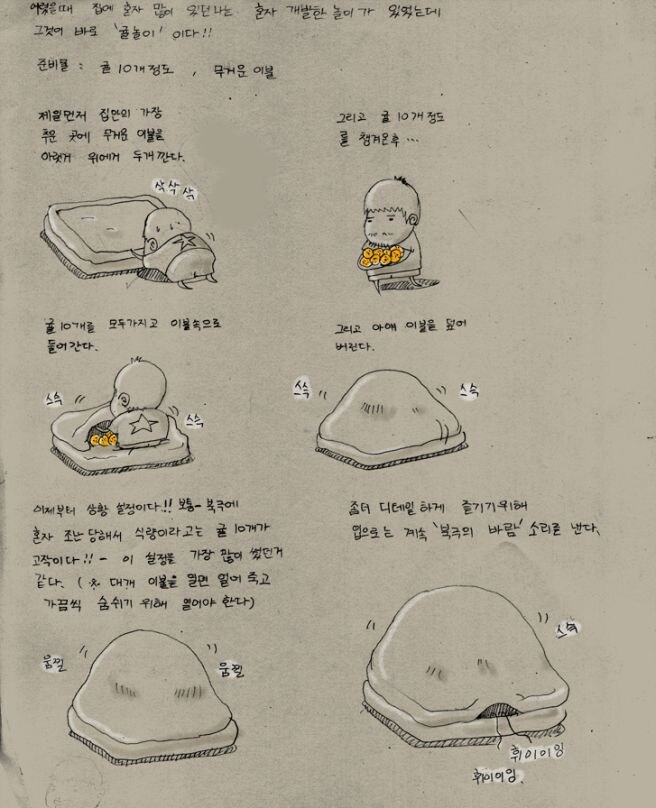 어렸을때 집에 혼자 많이 있던나는 혼자 개발한 놀이가 있었는데
그것이 바로 '귤놀이' 이다!!
준비물 : 귤 10개정도 , 무거운 이불
제일먼저 집안의 가장
추운 곳에 무거운 이불을
아랫거 위에거 두개 깐다.
삭삭삭
그리고 귤 10개 정도
를 챙겨온후 ···
귤 10개를 모두가지고 이불속으로
들어간다.
스슥
스슥
그리고 아얘 이불을 덮어
버린다.
스슥
스슥
이제부터 상황 설정이다!! 보통 - 북극에
혼자 조난 당해서 식량이라고는 귤 10개가
고작이다!! - 이 설정을 가장 많이 썼던거
같다. ( ※ 대개 이불을 열면 얼어 죽고
가끔씩 숨쉬기 위해 열어야 한다)
움찔
움찔
좀더 디테일 하게 즐기기위해
입으로는 계속 '북극의 바람' 소리를 낸다.
스슥
휘이이잉
휘이이잉